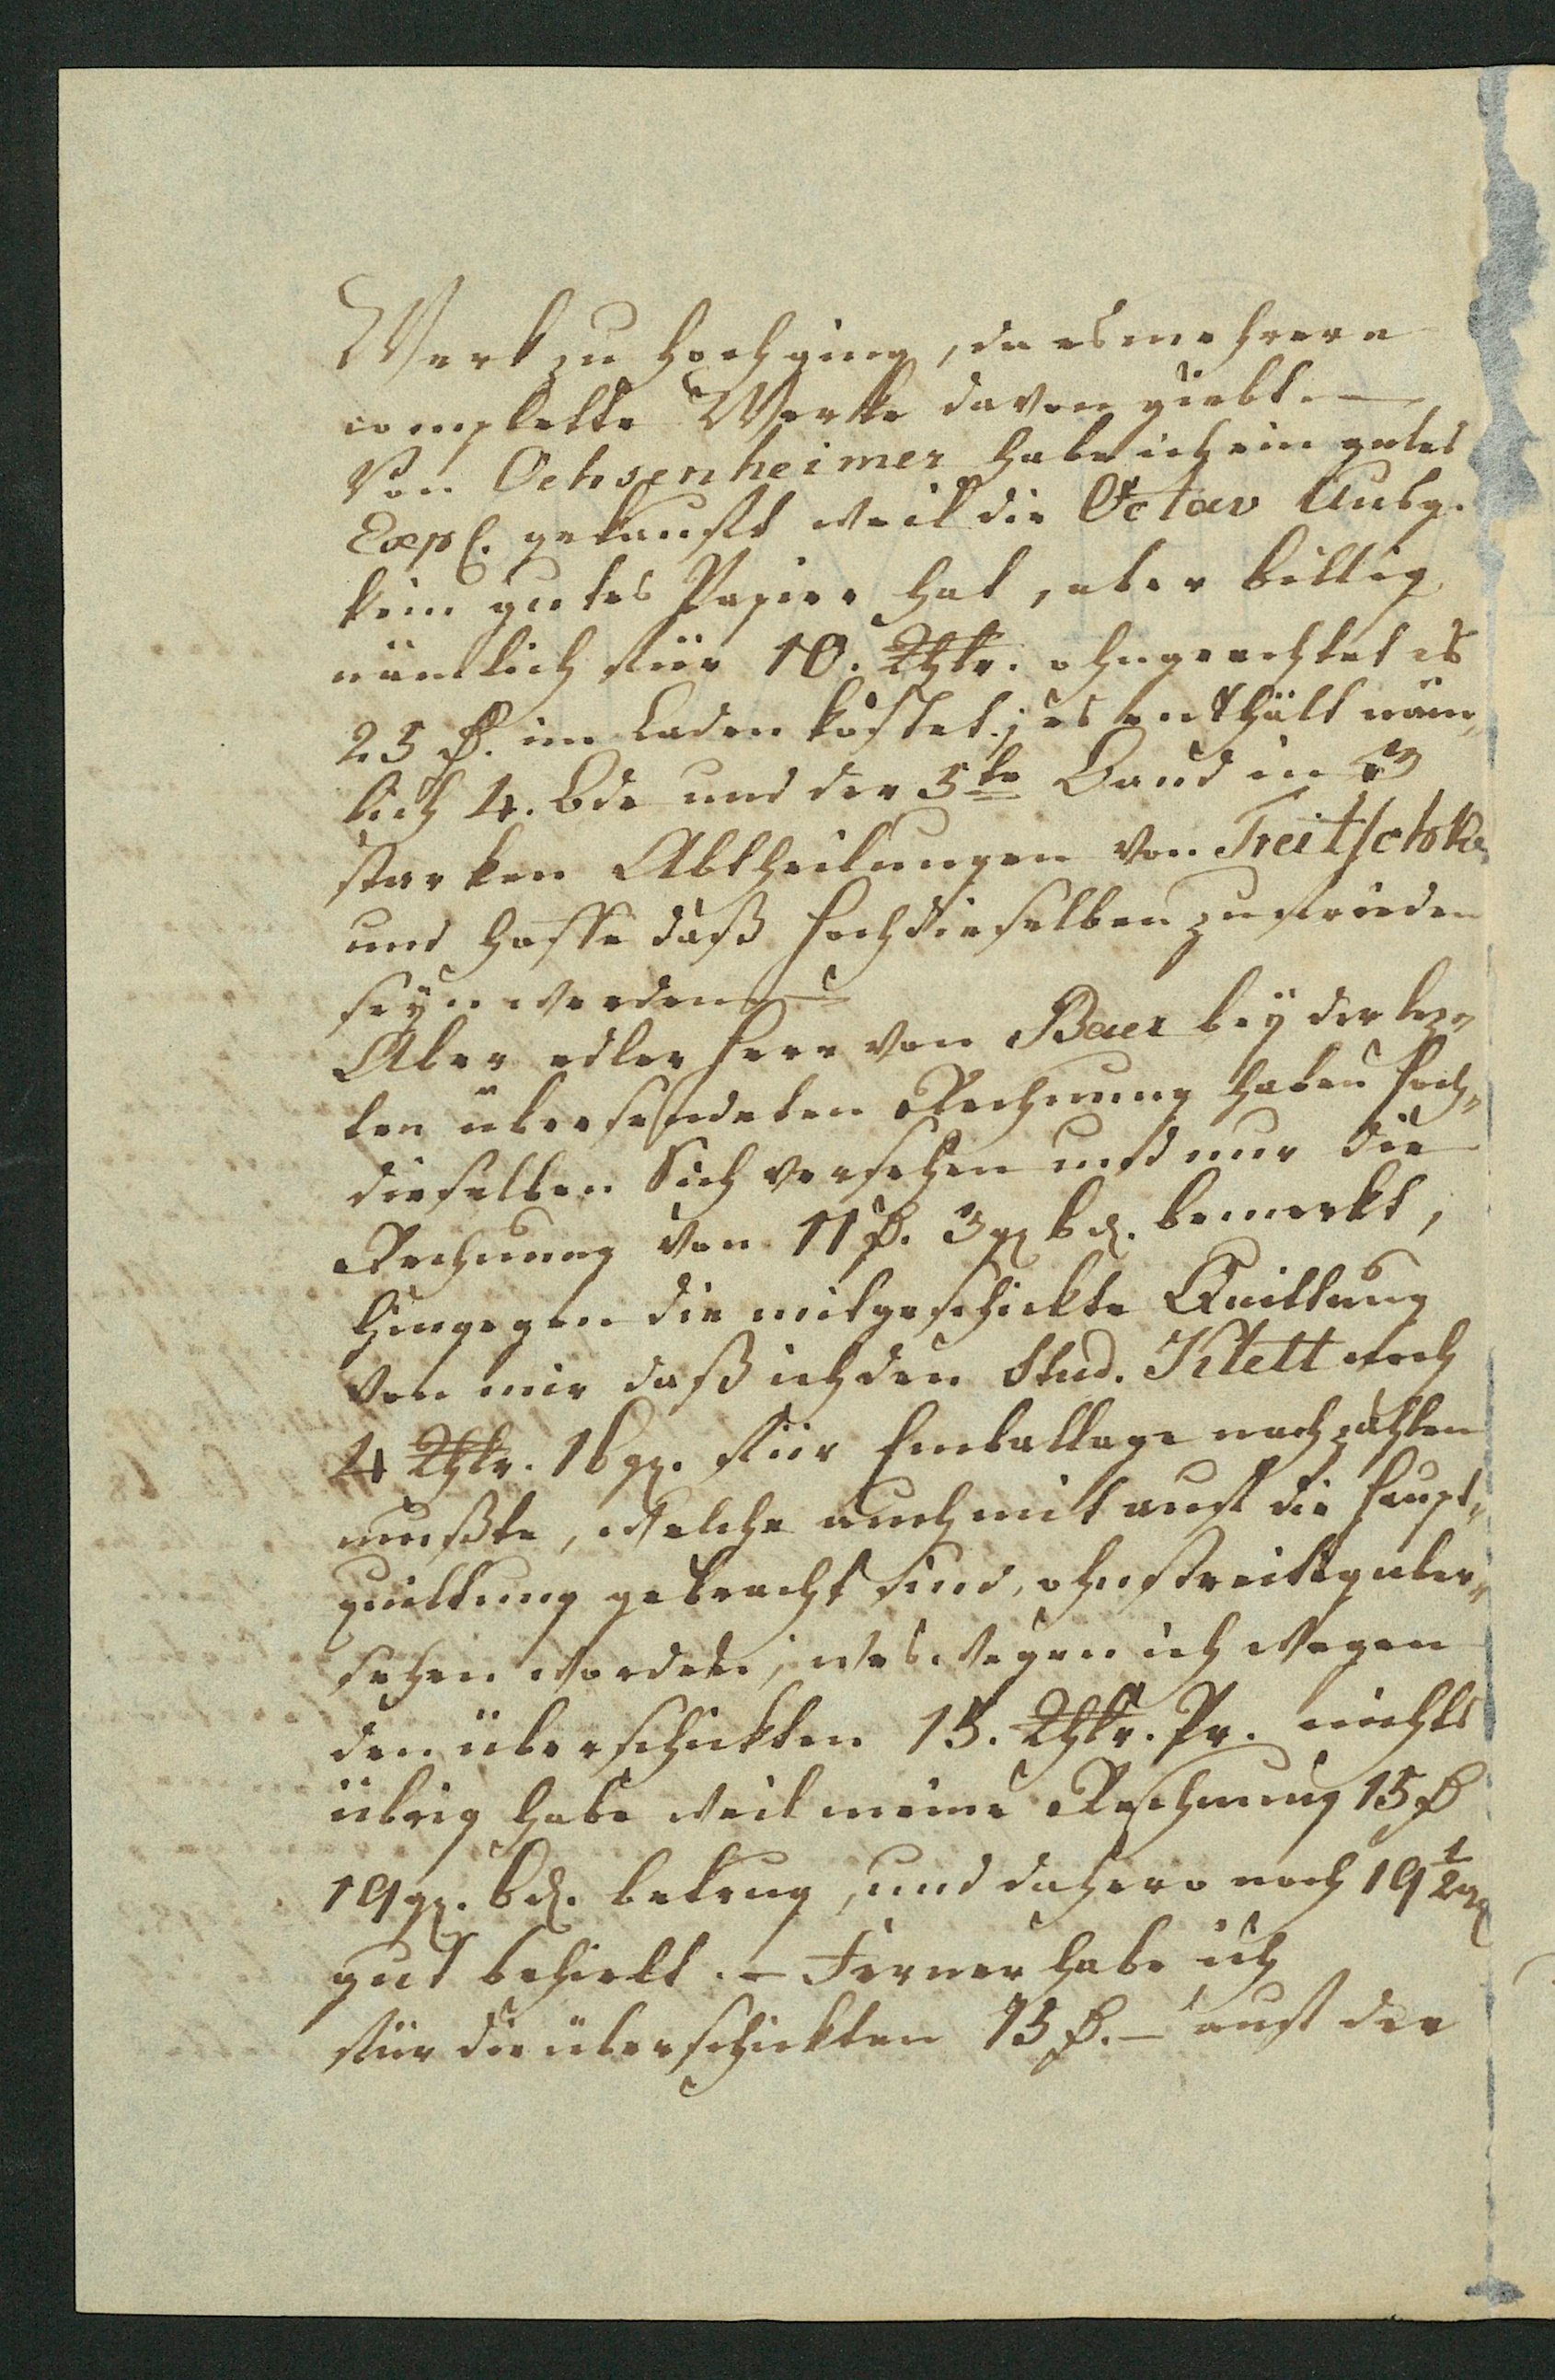 Werk zu hoch ging, da es mehrere
complette Werke davon giebt. —
Von Ochsenheimer habe ich ein gutes
Expl. gekauft weil die Octav Ausg.
kein gutes Papier hat, aber billig
nämlich für 10. Thlr. ohngeachtet es
25 fl. im Laden kostet; es enthält näm„
lich 4. Bde und der 5te Band in 3
starken Abtheilungen von Treitschke
und hoffe daß Hochdieselben zufrieden
seyn werden. —
Aber edler Herr von Baer bey der lez„
ten übersendeten Rechnung haben Hoch„
dieselben Sich versehen und nur die
Rechnung von 11 fl. 3 gr 6 d. bemerkt,
hingegen die mitgeschickte Quittung
von mir daß ich den Stud. Klett noch
4 Thlr. 16 gr. für Emballage nachzahlen
mußte, welche auch mit auf die Haupt„
quittung gebracht sind, ohnstreitig über„
sehen worden; weswegen ich wegen
den überschickten 15. Thlr. Pr. nichts
übrig habe weil meine Rechnung 15 fl
19 gr. 6 d. betrug, und dahero noch 19 1/2 gr
gut behielt. — Ferner habe ich
für die überschickten 15 fl. — auf der